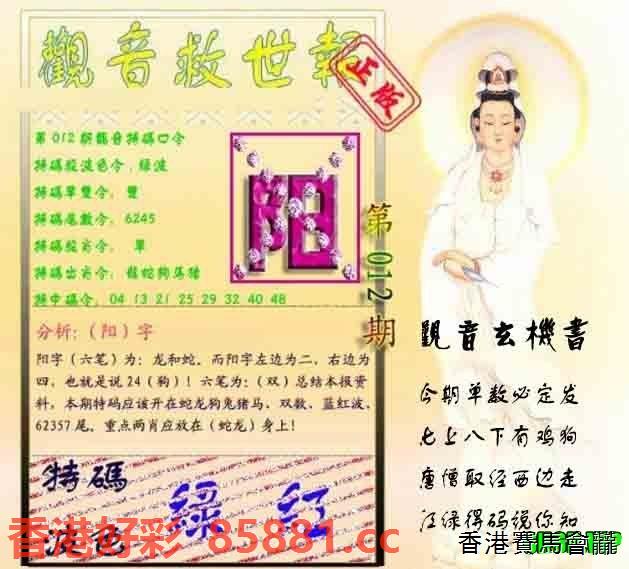 觀音救世報
正版
第012期觀音特碼口令
特碼綻波色令．綠波
特碼單雙令：雙
特碼尾數令：6245
特碼綻肖令： 單
特碼出肖令：龍蛇狗馬猪
特中碼令：04 13 21 25 29 32 40 48
阳
第012期
分析:（阳）字
阳字（六笔）为：龙和蛇。而阳字左边为二，右边为
四，也就是说24（狗）！六笔为：（双）总结本报资
料，本期特码应该开在蛇龙狗兔猪马、双数、蓝红波、
62357尾。重点两肖应放在（蛇龙）身上！
特碼
波色
綠 红
觀音玄機書
今期单数必定发
七上八下有鸡狗
唐僧取经西边走
江绿得码说你知
香港好彩 85881.cc
香港賽馬會